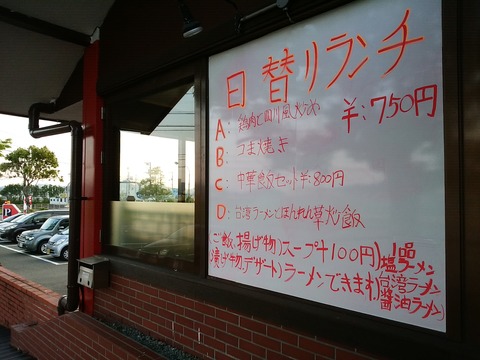 日替リランチ
¥:750円
A: 鶏肉と四川風
B: つま焼き
C: 中華飯セット¥:800円
D: 台湾ラーメンとほんれん草炒飯
(ご飯、揚げ物)スープ+100円)
漬け物、デザート)ラーメンできます)
塩ラーメン
台湾ラーメン
醤油ラーメン)
P